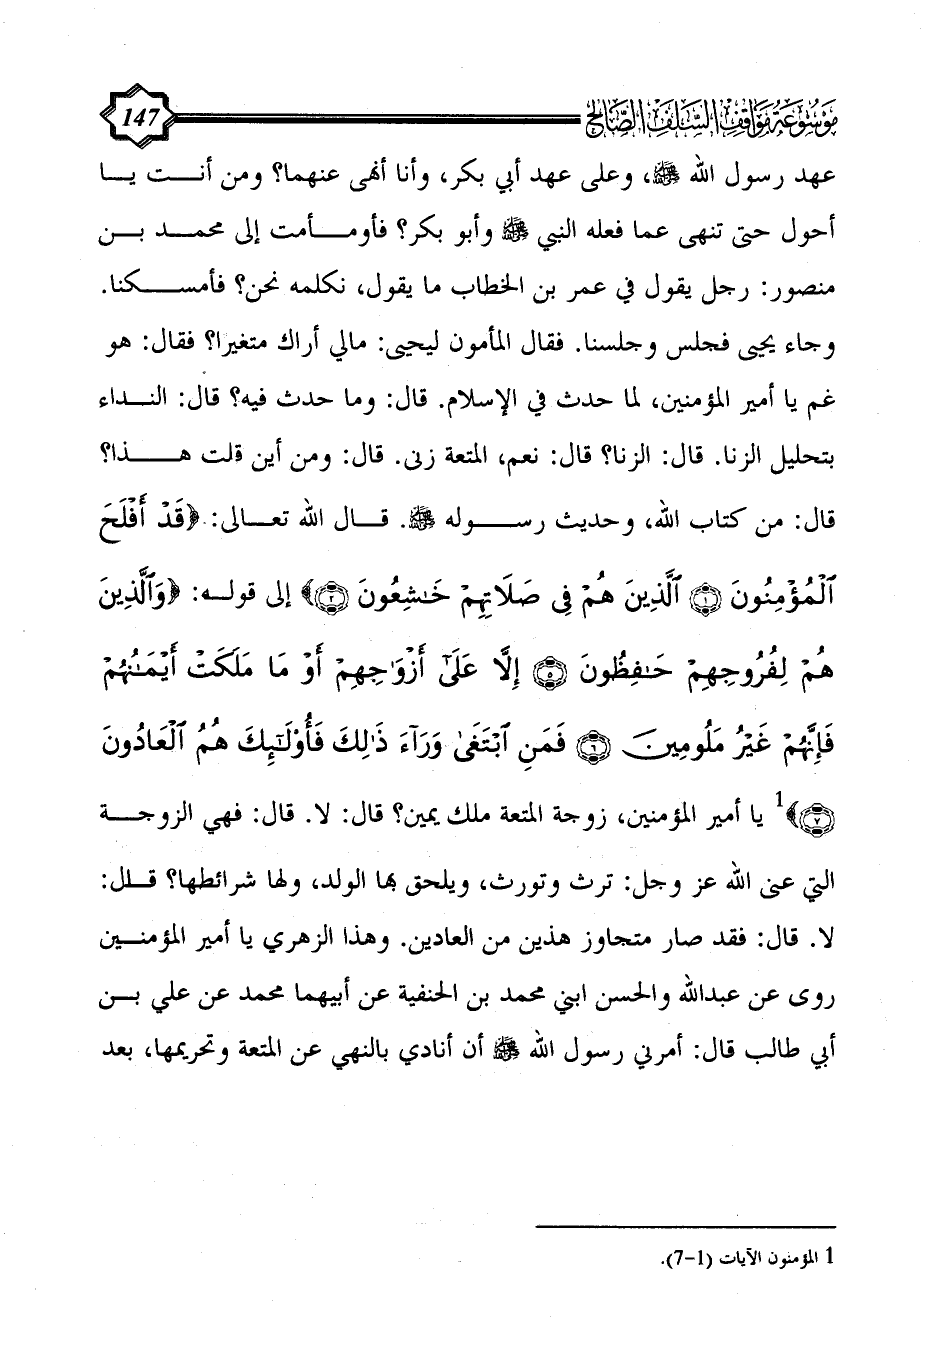 موسوعة مواقف السلف الصالح
147
عهد رسول الله ﷺ، وعلى عهد أبي بكر، وأنا أنهى عنهما؟ ومن أنــت يــا
أحول حتى تنهى عما فعله النبي ﷺ وأبو بكر؟ فأومــأمت إلى محمــد بــن
منصور: رجل يقول في عمر بن الخطاب ما يقول، نكلمه نحن؟ فأمســكنا.
وجاء يحيى فجلس وجلسنا. فقال المأمون ليحيى: مالي أراك متغيرا؟ فقال: هو
غم يا أمير المؤمنين، لما حدث في الإسلام. قال: وما حدث فيه؟ قال: النــداء
بتحليل الزنا. قال: الزنا؟ قال: نعم، المتعة زنى. قال: ومن أين قلت هــذا؟
قال: من كتاب الله، وحديث رســوله ﷺ. قــال الله تعــالى: ﴿قَدْ أَفْلَحَ
ٱلْمُؤْمِنُونَ ۝١ ٱلَّذِينَ هُمْ فِى صَلَاتِهِمْ خَـٰشِعُونَ ۝٢﴾ إلى قولــه: ﴿وَٱلَّذِينَ
هُمْ لِفُرُوجِهِمْ حَـٰفِظُونَ ۝٥ إِلَّا عَلَىٰٓ أَزْوَٰجِهِمْ أَوْ مَا مَلَكَتْ أَيْمَـٰنُهُمْ
فَإِنَّهُمْ غَيْرُ مَلُومِينَ ۝٦ فَمَنِ ٱبْتَغَىٰ وَرَآءَ ذَٰلِكَ فَأُو۟لَـٰٓئِكَ هُمُ ٱلْعَادُونَ
۝٧﴾1 يا أمير المؤمنين، زوجة المتعة ملك يمين؟ قال: لا. قال: فهي الزوجــة
التي عنى الله عز وجل: ترث وتورث، ويلحق بها الولد، ولها شرائطها؟ قــال:
لا. قال: فقد صار متجاوز هذين من العادين. وهذا الزهري يا أمير المؤمنــين
روى عن عبدالله والحسن ابني محمد بن الحنفية عن أبيهما محمد عن علي بــن
أبي طالب قال: أمرني رسول الله ﷺ أن أنادي بالنهي عن المتعة وتحريمها، بعد
1 المؤمنون الآيات (1-7).